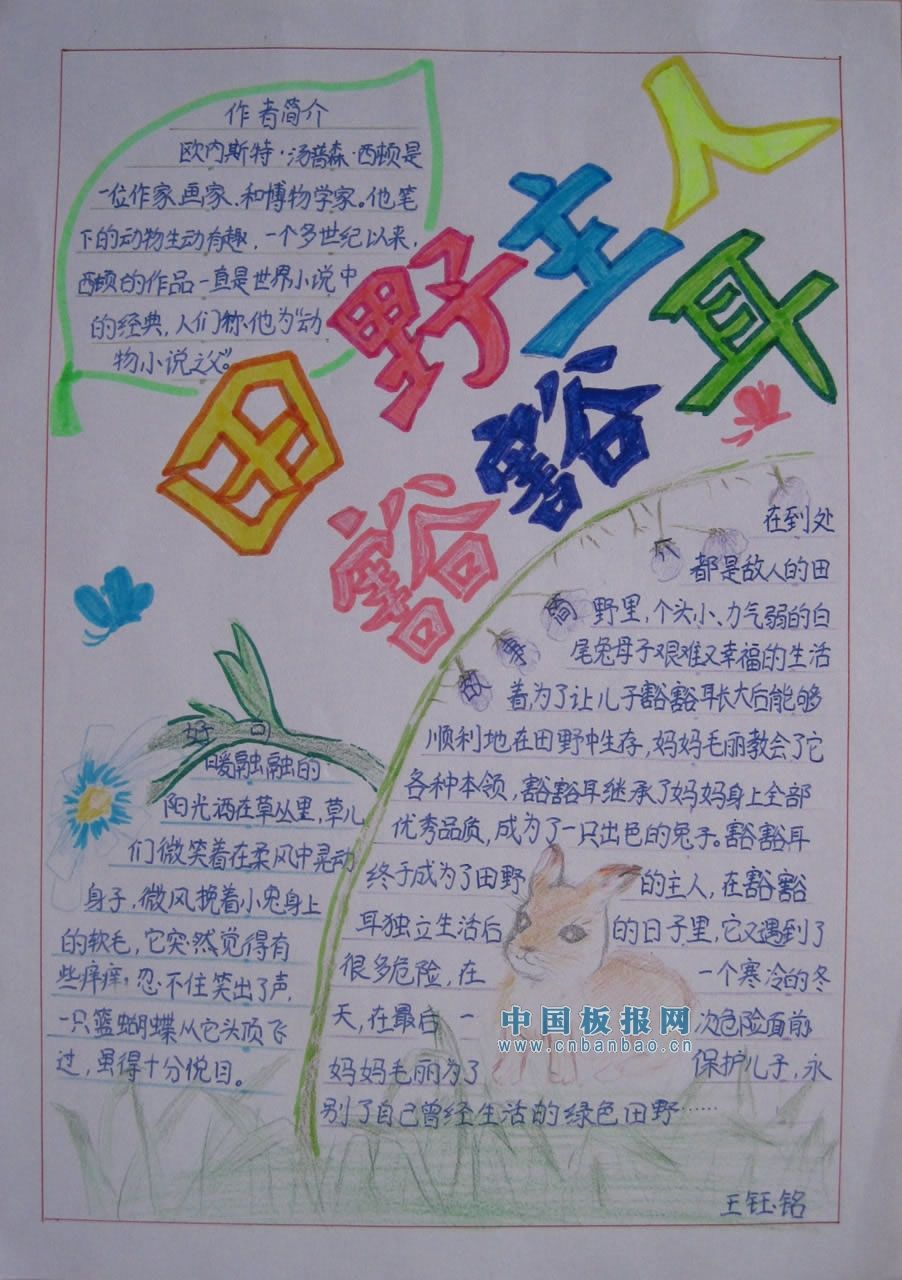 作者简介
欧内斯特·汤普森·西顿是
一位作家.画家.和博物学家。他笔
下的动物生动有趣，一个多世纪以来,
西顿的作品一直是世界小说中
的经典,人们称他为“动
物小说之父”。
田野主人
豁豁耳
故事简
在到处
都是敌人的田
野里，个头小、力气弱的白
尾兔母子艰难又幸福的生活
着,为了让儿子豁豁耳长大后能够
顺利地在田野中生存,妈妈毛丽教会了它
各种本领,豁豁耳继承了妈妈身上全部
优秀品质,成为了一只出色的兔子。豁豁耳
终于成为了田野的主人,在豁豁
耳独立生活后的日子里,它又遇到了
很多危险,在一个寒冷的冬
天,在最后一次危险面前,
妈妈毛丽为了保护儿子,永
别了自己曾经生活的绿色田野……
好句
暖融融的
阳光洒在草丛里,草儿
们微笑着在柔风中晃动
身子.微风挠着小兔身上
的软毛,它突然觉得有
些痒痒,忍不住笑出了声,
一只篮蝴蝶从它头顶飞
过,虽得十分悦目。
中国板报网
www.cnbanbao.cn
王钰铭